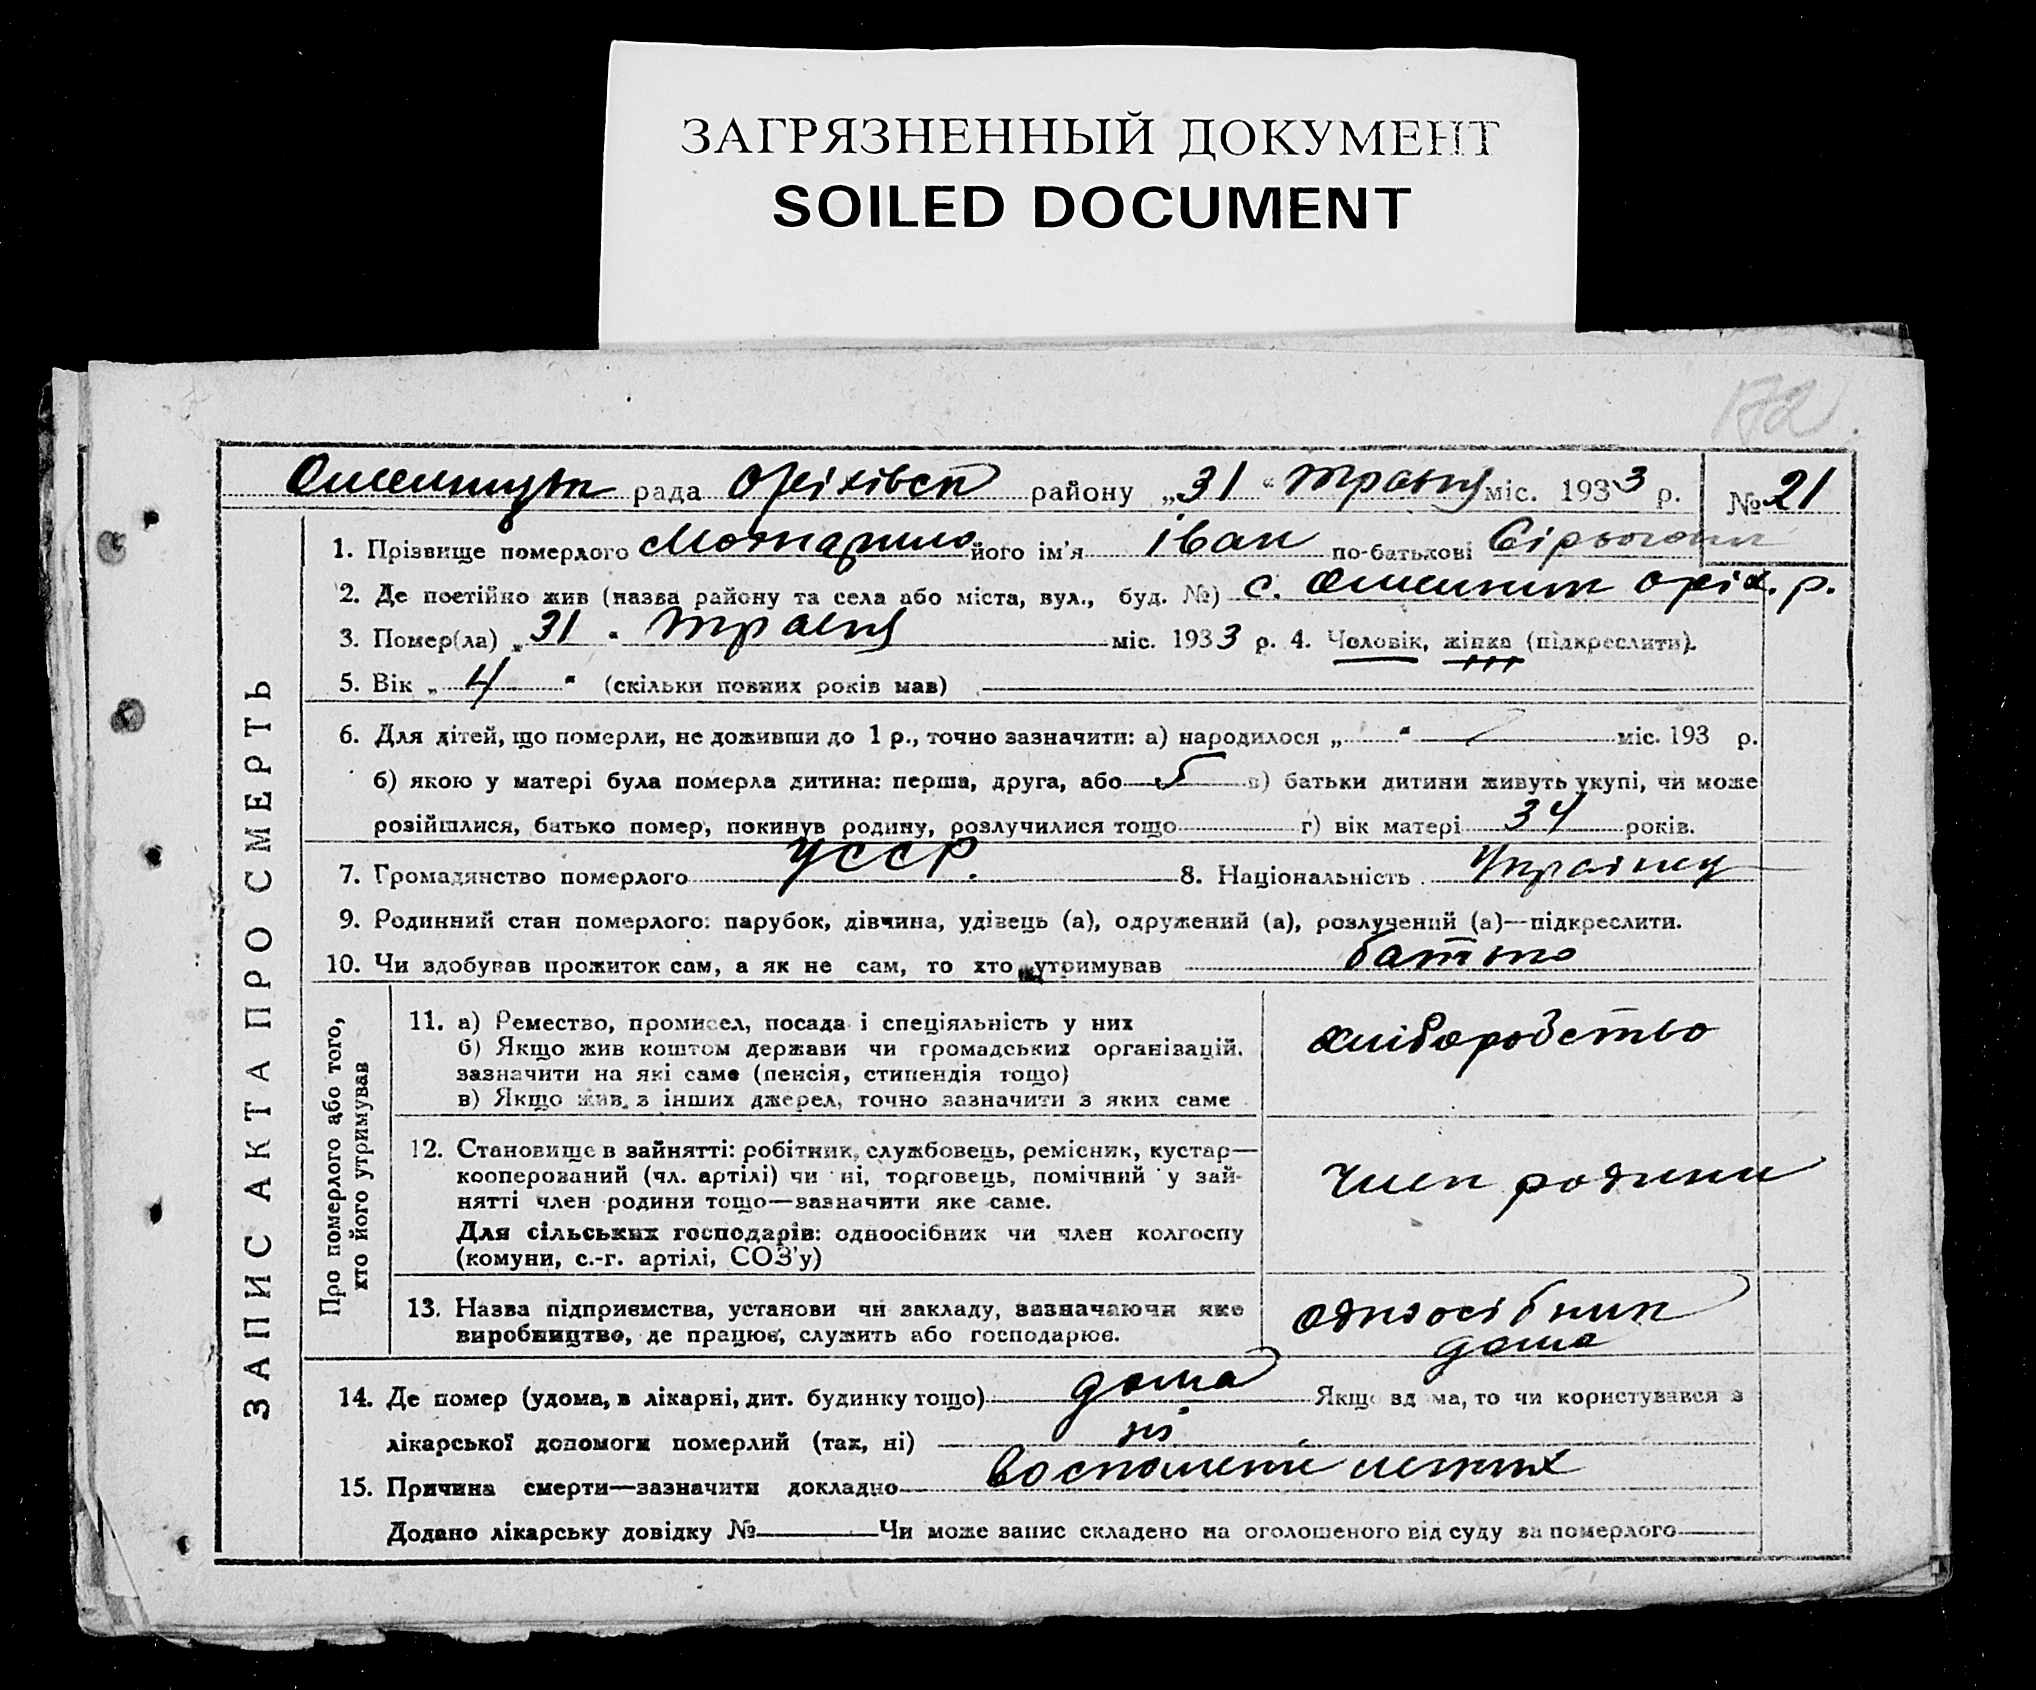 ЗАГРЯЗНЕННЫЙ ДОКУМЕНТ
SOILED DOCUMENT
172
рада Оріхівськ району „31“ травня міс. 1933 р. № 21
1. Прізвище померлого його ім'я Іван по-батькові
2. Де постійно жив (назва району та села або міста, вул., буд. №) с. Оріх. р.
3. Помер(ла) „31“ травня міс. 1933 р. 4. Чоловік, жінка (підкреслити).
5. Вік „4“ (скільки повних років мав)
6. Для дітей, що померли, не доживши до 1 р., точно зазначити: а) народилося „ “ міс. 193 р.
б) якою у матері була померла дитина: перша, друга, або 5 в) батьки дитини живуть укупі, чи може
розійшлися, батько помер, покинув родину, розлучилися тощо г) вік матері 34 років.
7. Громадянство померлого УССР. 8. Національність
9. Родинний стан померлого: парубок, дівчина, удівець (а), одружений (а), розлучений (а)—підкреслити.
10. Чи здобував прожиток сам, а як не сам, то хто утримував батько
ЗАПИС АКТА ПРО СМЕРТЬ
Про померлого або того,
хто його утримував
11. а) Ремество, промисел, посада і спеціяльність у них
б) Якщо жив коштом держави чи громадських організацій,
зазначити на які саме (пенсія, стипендія тощо)
в) Якщо жив з інших джерел, точно зазначити з яких саме
хліборобство
12. Становище в зайнятті: робітник, службовець, ремісник, кустар—
кооперований (чл. артілі) чи ні, торговець, помічний у зай-
нятті член родини тощо—зазначити яке саме.
Для сільських господарів: одноосібник чи член колгоспу
(комуни, с.-г. артілі, СОЗ'у)
член родини
13. Назва підприємства, установи чи закладу, зазначаючи яке
виробництво, де працює, служить або господарює.
одноосібник
дома
14. Де помер (удома, в лікарні, дит. будинку тощо) дома Якщо вдома, то чи користувався з
лікарської допомоги померлий (так, ні) ні
15. Причина смерти—зазначити докладно воспаление легких
Додано лікарську довідку № Чи може запис складено на оголошеного від суду за померлого